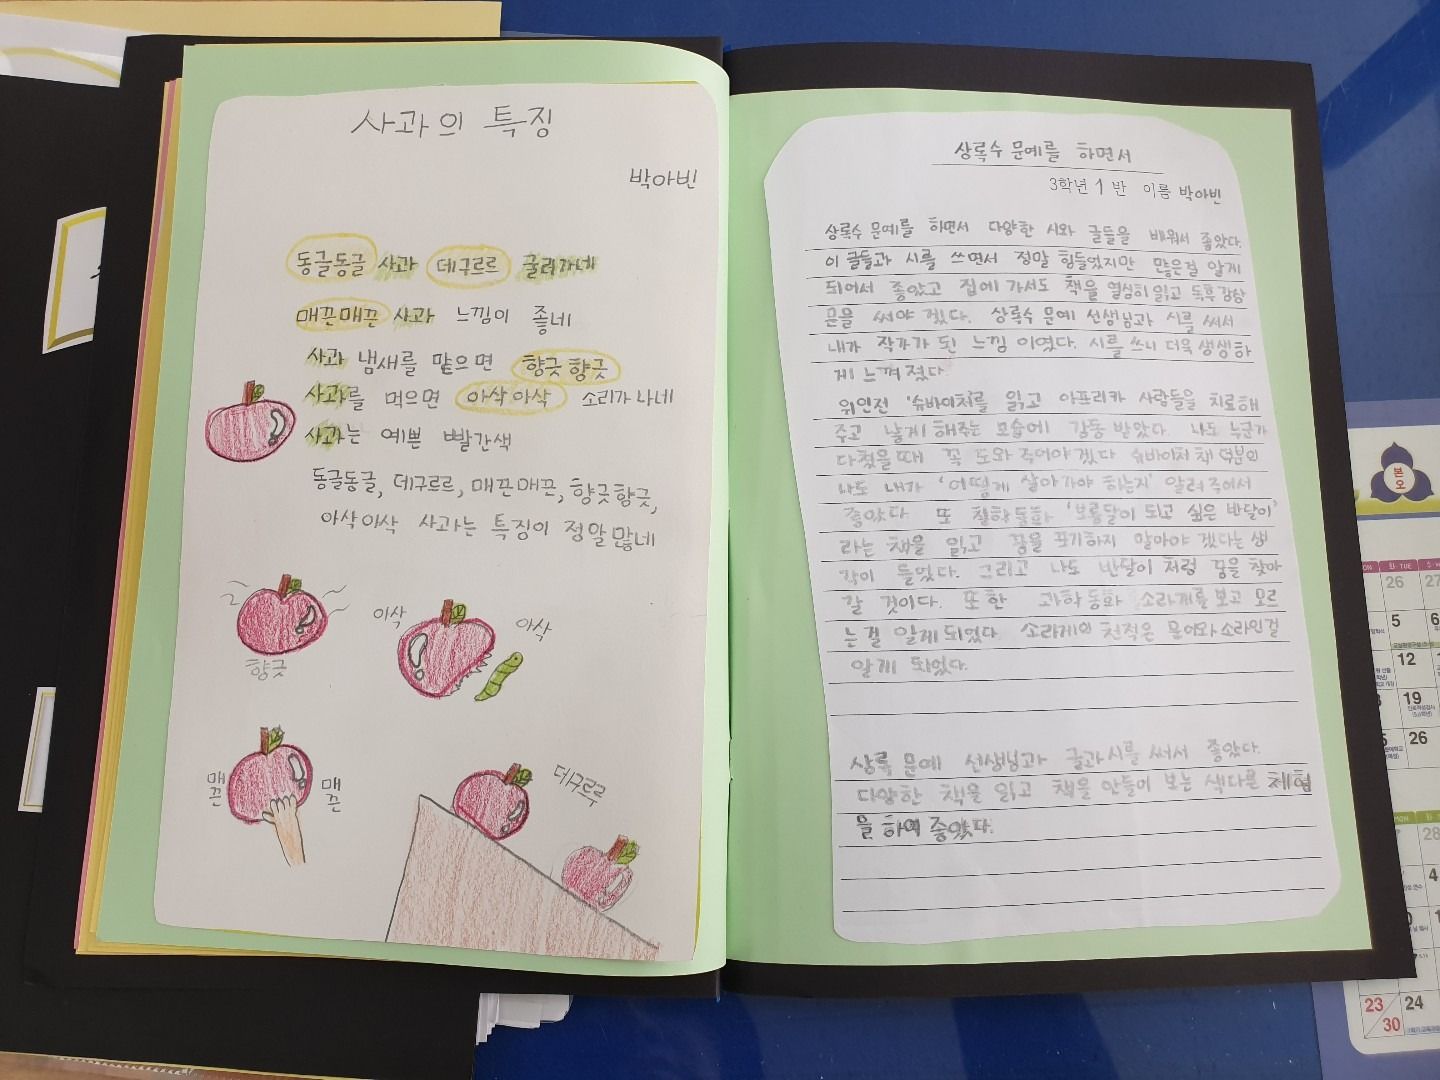 사과의 특징
박아빈
동글동글 사과 데구르르 굴러가네
매끈매끈 사과 느낌이 좋네
사과 냄새를 맡으면 향긋 향긋
사과를 먹으면 아삭 아삭 소리가 나네
사과는 예쁜 빨간색
동글동글, 데구르르, 매끈매끈, 향긋향긋,
아삭아삭 사과는 특징이 정말 많네
향긋
아삭
아삭
매끈
매끈
데구르루
상록수 문예를 하면서
3학년 1 반 이름 박아빈
상록수 문예를 하면서 다양한 시와 글들을 배워서 좋았다.
이 글들과 시를 쓰면서 정말 힘들었지만 많은걸 알게
되어서 좋았고 집에 가서도 책을 열심히 읽고 독후감상
문을 써야 겠다. 상록수 문예 선생님과 시를 써서
내가 작가가 된 느낌 이였다. 시를 쓰니 더욱 생생하
게 느껴 졌다.
위인전 '슈바이처를 읽고 아프리카 사람들을 치료해
주고 낳게 해주는 모습에 감동 받았다. 나도 누군가
다쳤을 때 꼭 도와 주어야 겠다 슈바이처 책 덕분에
나도 내가 '어떻게 살아가야 하는지' 알려 주어서
좋았다 또 철학동화 '보름달이 되고 싶은 반달이'
라는 책을 읽고 꿈을 포기하지 말아야 겠다는 생
각이 들었다. 그리고 나도 반달이 처럼 꿈을 찾아
갈 것이다. 또한 과학 동화 소라게를 보고 모르
는걸 알게 되었다 소라게의 천적은 문어와 소라인걸
알게 되었다.
상록 문예 선생님과 글과 시를 써서 좋았다.
다양한 책을 읽고 책을 만들어 보는 색다른 체험
을 하여 좋았다.
본오
TUE
26
27
5
6
12
19
26
MON
4
23
30
24